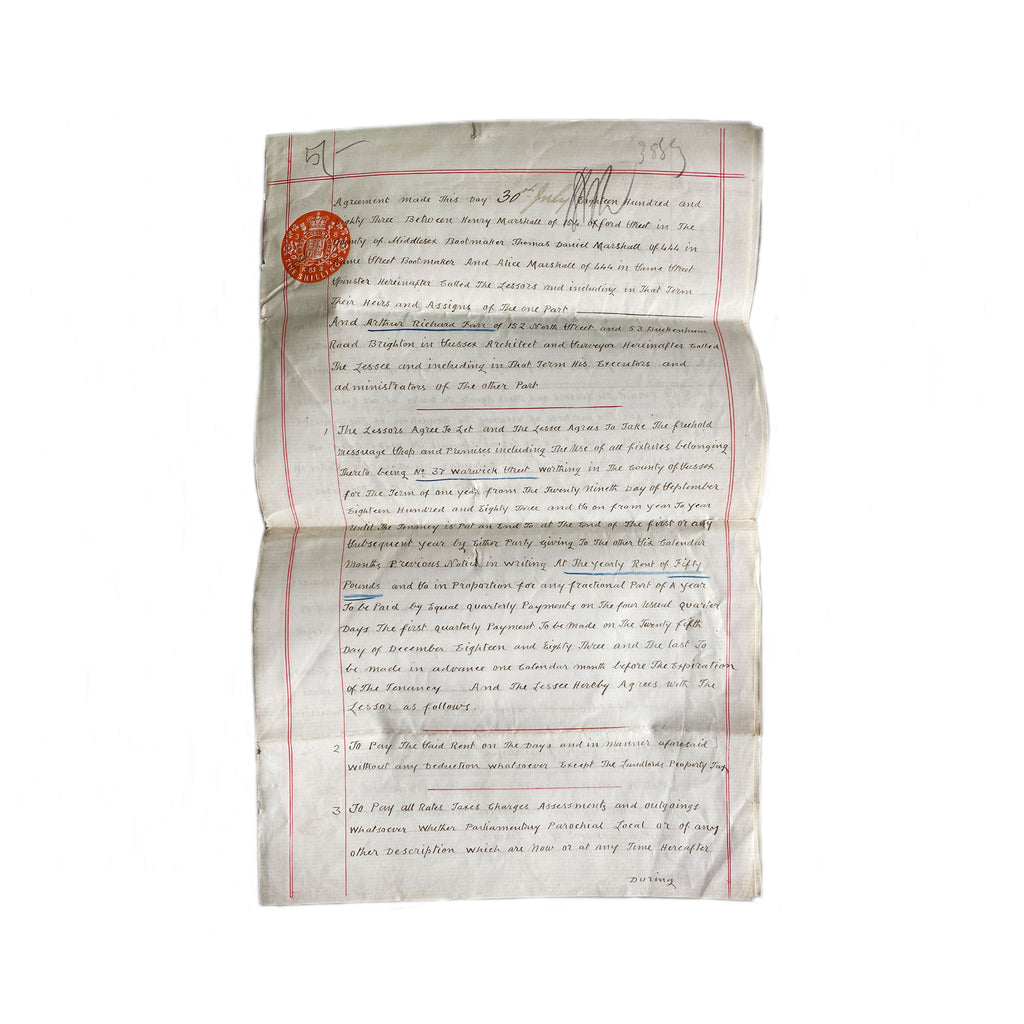 5/-
Agreement made This Day 30th July Eighteen Hundred and
Eighty Three Between Henry Marshall of Oxford Street in The
County of Middlesex Bootmaker Thomas Daniel Marshall of 444 in
Same Street Bootmaker And Alice Marshall of 444 in Same Street
Spinster Hereinafter Called The Lessors and including in That Term
Their Heirs and Assigns of The one Part
And Arthur Richard of 152 North Street and 53 Buckenham
Road Brighton in Sussex Architect and Surveyor Hereinafter Called
The Lessee and including in That Term His Executors and
administrators of The other Part
1 The Lessors Agree To Let and The Lessee Agrees To Take The freehold
messuage Shop and Premises including The Use of all fixtures belonging
Thereto being No 37 Warwick Street Worthing in The County of Sussex
for The Term of one year from The Twenty Ninth Day of September
Eighteen Hundred and Eighty Three and So on from year To year
Until The Tenancy is Put an End To at The End of The first or any
Subsequent year by Either Party giving To The other Six Calendar
Months Previous Notice in writing At The yearly Rent of Fifty
Pounds and So in Proportion for any fractional Part of A year
To be Paid by Equal quarterly Payments on The four Usual quarter
Days The first quarterly Payment To be Made on The Twenty fifth
Day of December Eighteen and Eighty Three and The last To
be made in advance one Calendar month before The Expiration
of The Tenancy And The Lessee Hereby Agrees With The
Lessor as follows.
2 To Pay The Said Rent on The Days and in Manner aforesaid
Without any Deduction whatsoever Except The Landlords Property Tax
3 To Pay all Rates Taxes Charges Assessments and outgoings
Whatsoever Whether Parliamentary Parochial Local or of any
other Description which are Now or at any Time Hereafter
During